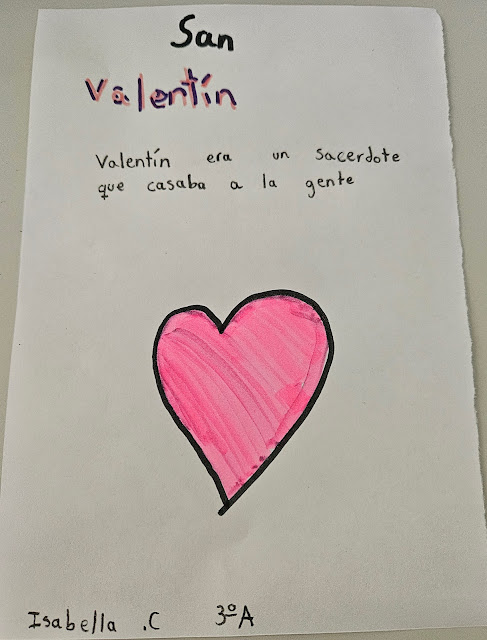 San
Valentín
Valentín era un sacerdote
que casaba a la gente
Isabella .C 3ºA